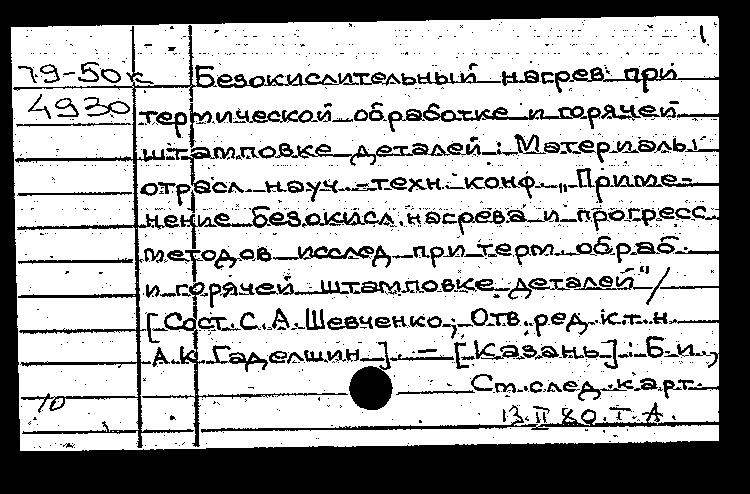 1
79-50к Безокислительный нагрев при
4930 термической обработке и горячей
штамповке деталей: Материалы
отрасл. науч.-техн. конф. „Приме-
нение безокисл. нагрева и прогресс.
методов исслед. при терм. обраб.
и горячей штамповке деталей"/
[Сост. С. А. Шевченко; Отв. ред. к.т.н.
А.К. Гаделшин]. — [Казань]: Б.и.,
См. след. карт.
10 13.II 80. Т. А.